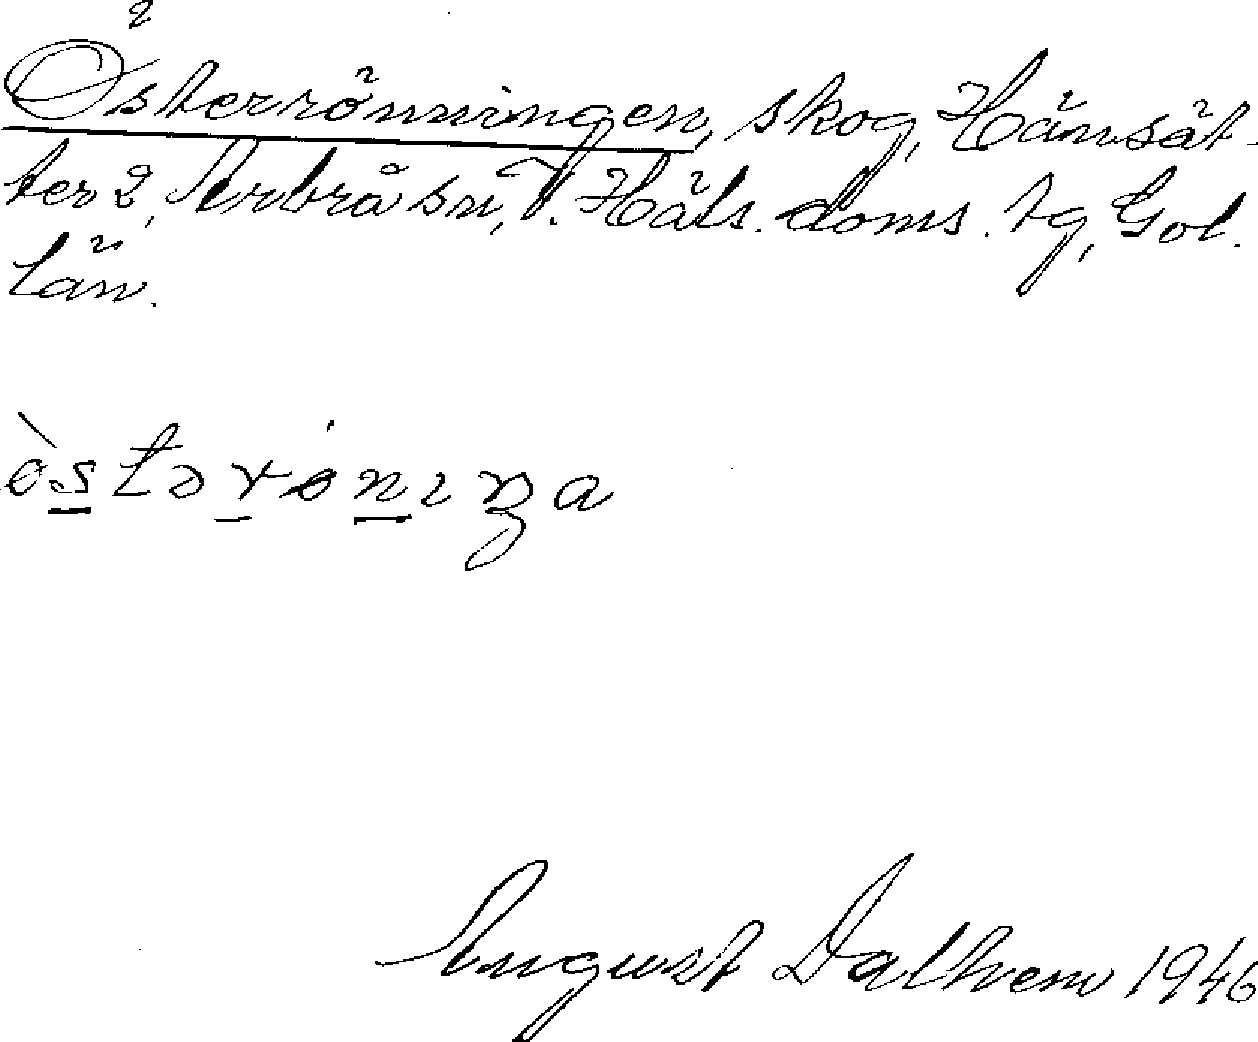 Österrönningen, skog, Hänsät-
ter 2, Arbrå sn, V. Häls. doms. tg, Gvl.
län.
òstərónıŋa
August Dalhem 1946